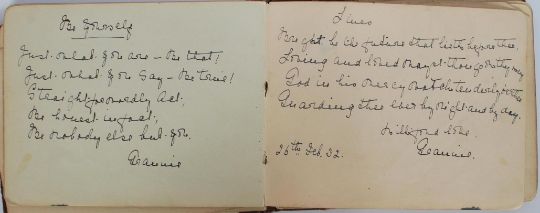 Be Yourself
Just what you are - Be that!
Just what you say - Be true!
Straightforwardly act,
Be honest in fact,
Be nobody else but you.
Jeannie
Lines
Bright be the future that lieth before thee,
Loving and loved mayst thou go thy way
God in his mercy watch tenderly o'er thee
Guarding thee ever by night and by day.
love
Jeannie.
26th Feb. 32.